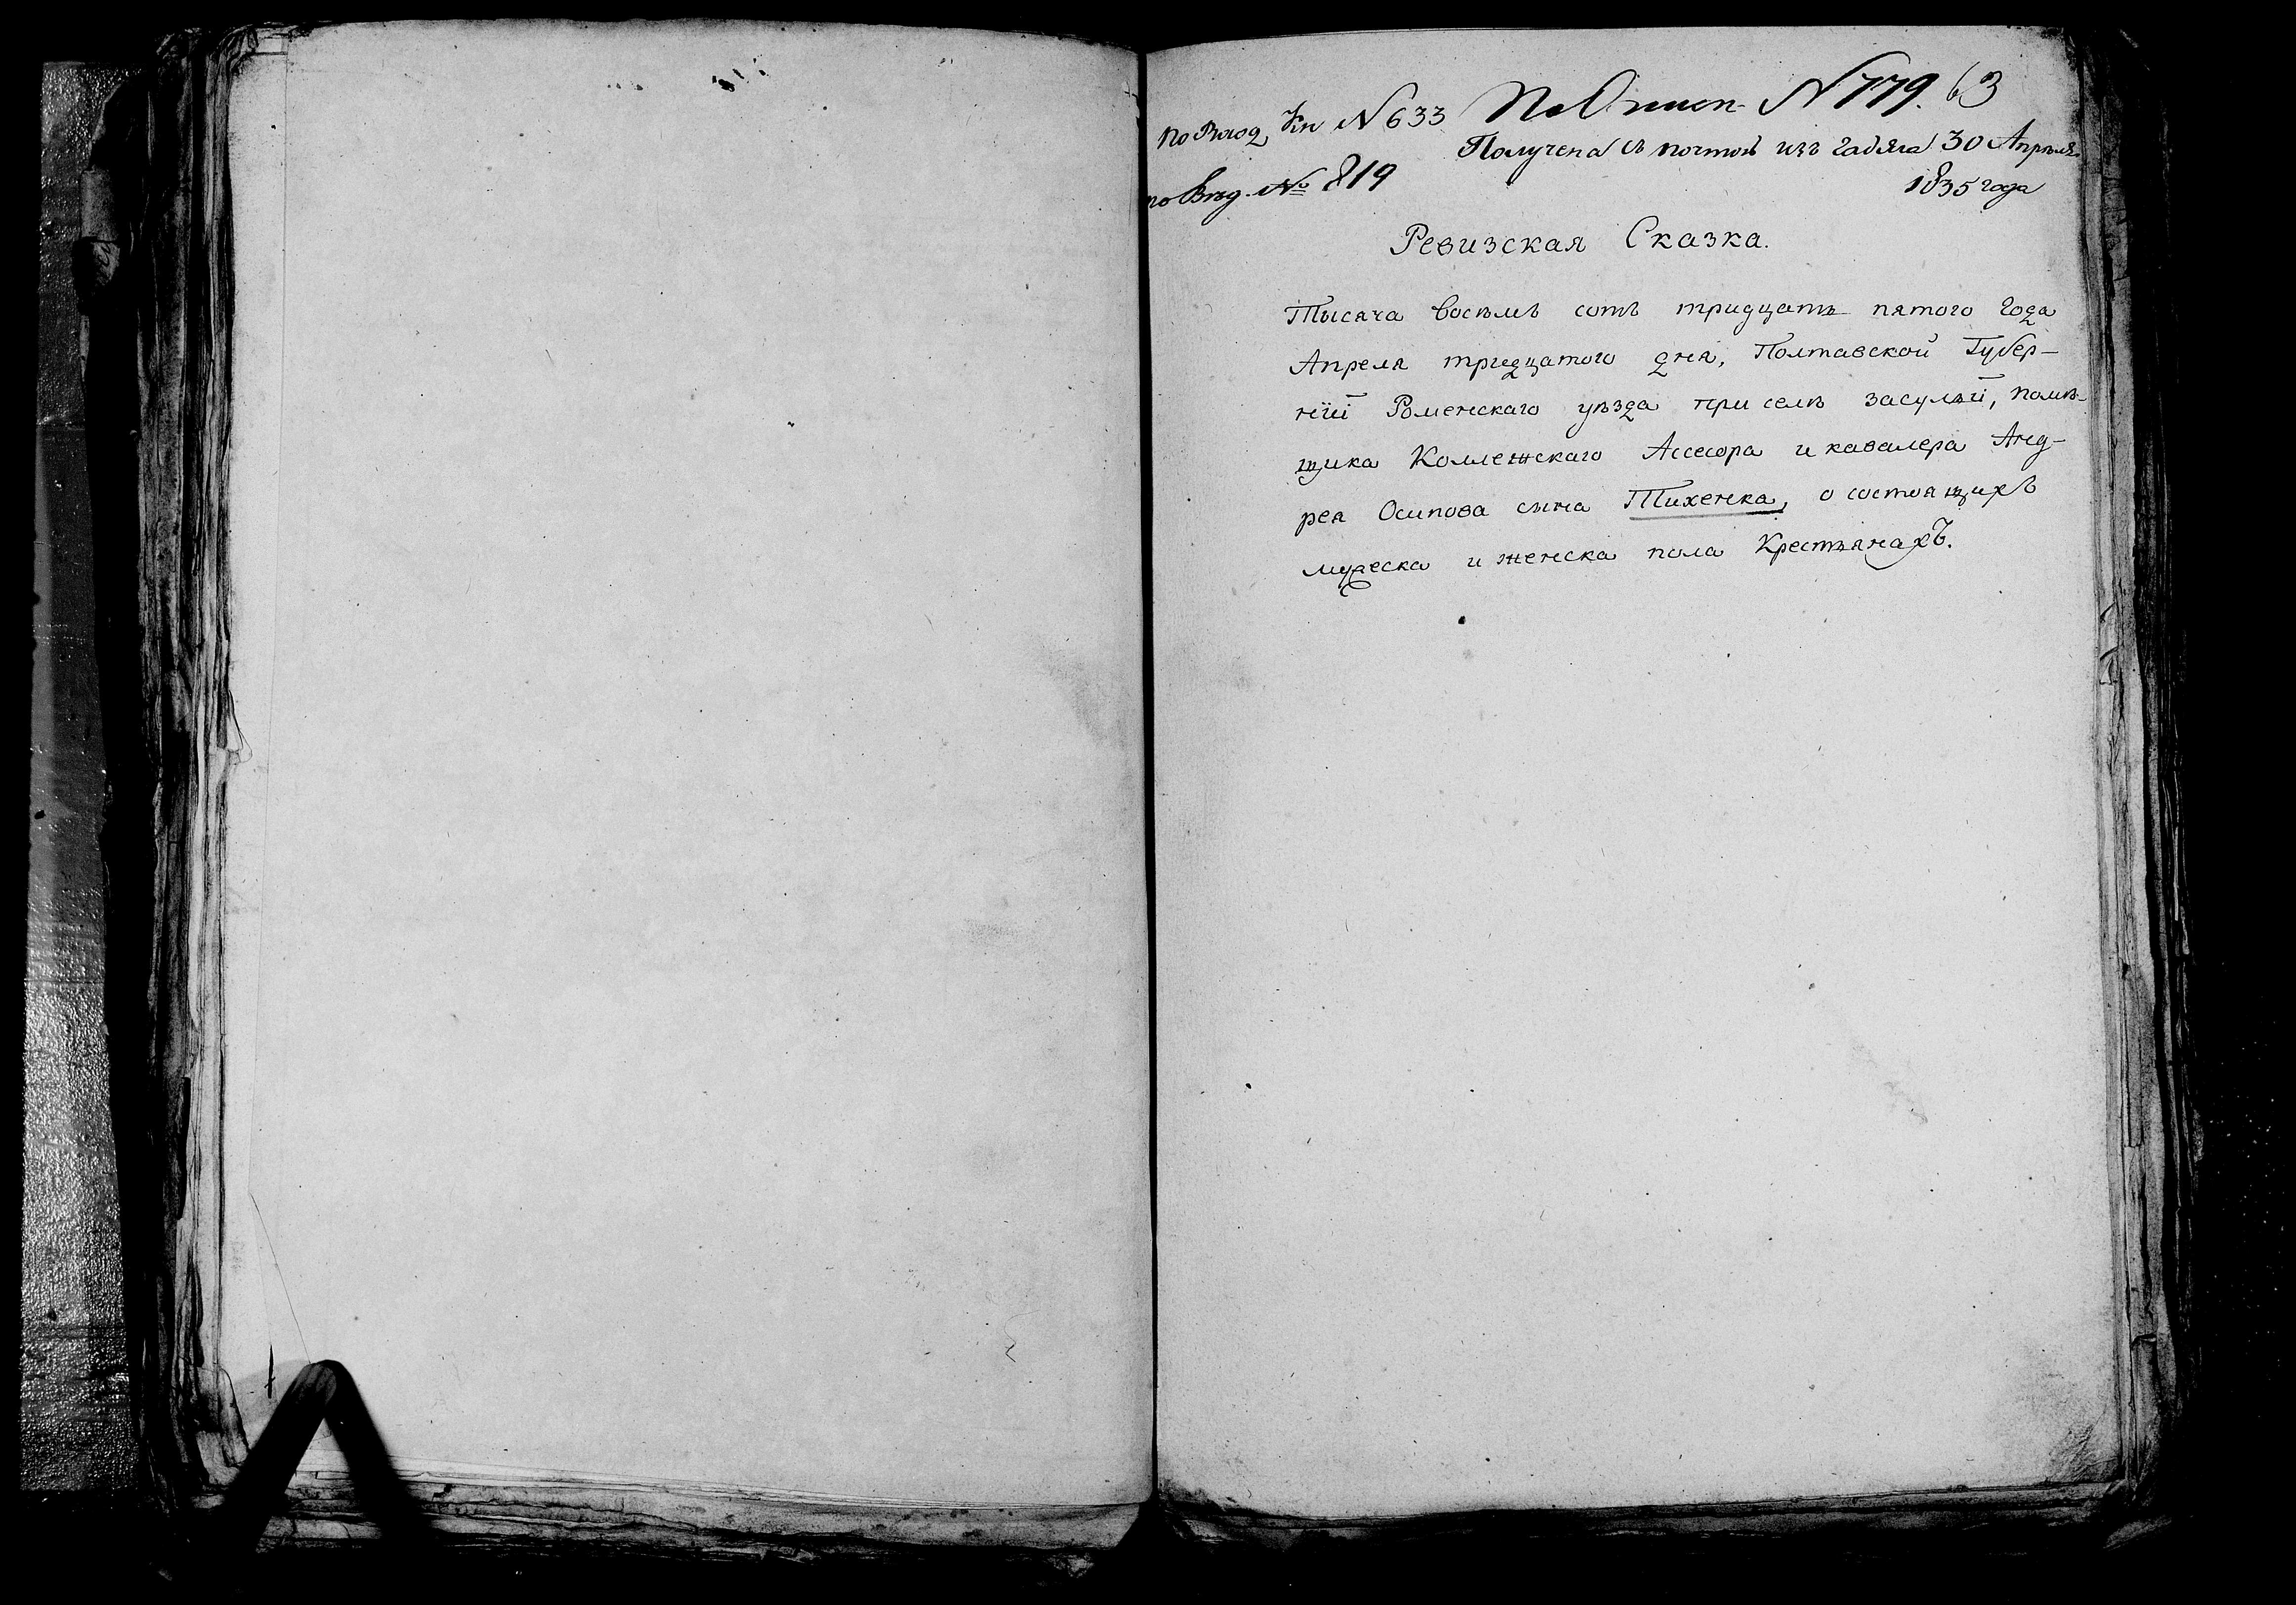 по Вход. Кн № 633 По Описи № 779. 63
Получена съ почтой изъ Гадяча 30 Апреля
по Вѣд. № 819
1835 года
Ревизская Сказка.
Тысяча восѣмъ сотъ тридцать пятого года
Апреля тридцатого дня, Полтавской Губер–
нїи Роменскаго уѣзда при селѣ засулїи, помѣ–
щика Коллежскаго Ассесора и кавалера Анд–
рея Осипова сына Тихенка, о состоящихъ
мужеска и женска пола Крестьянахъ.